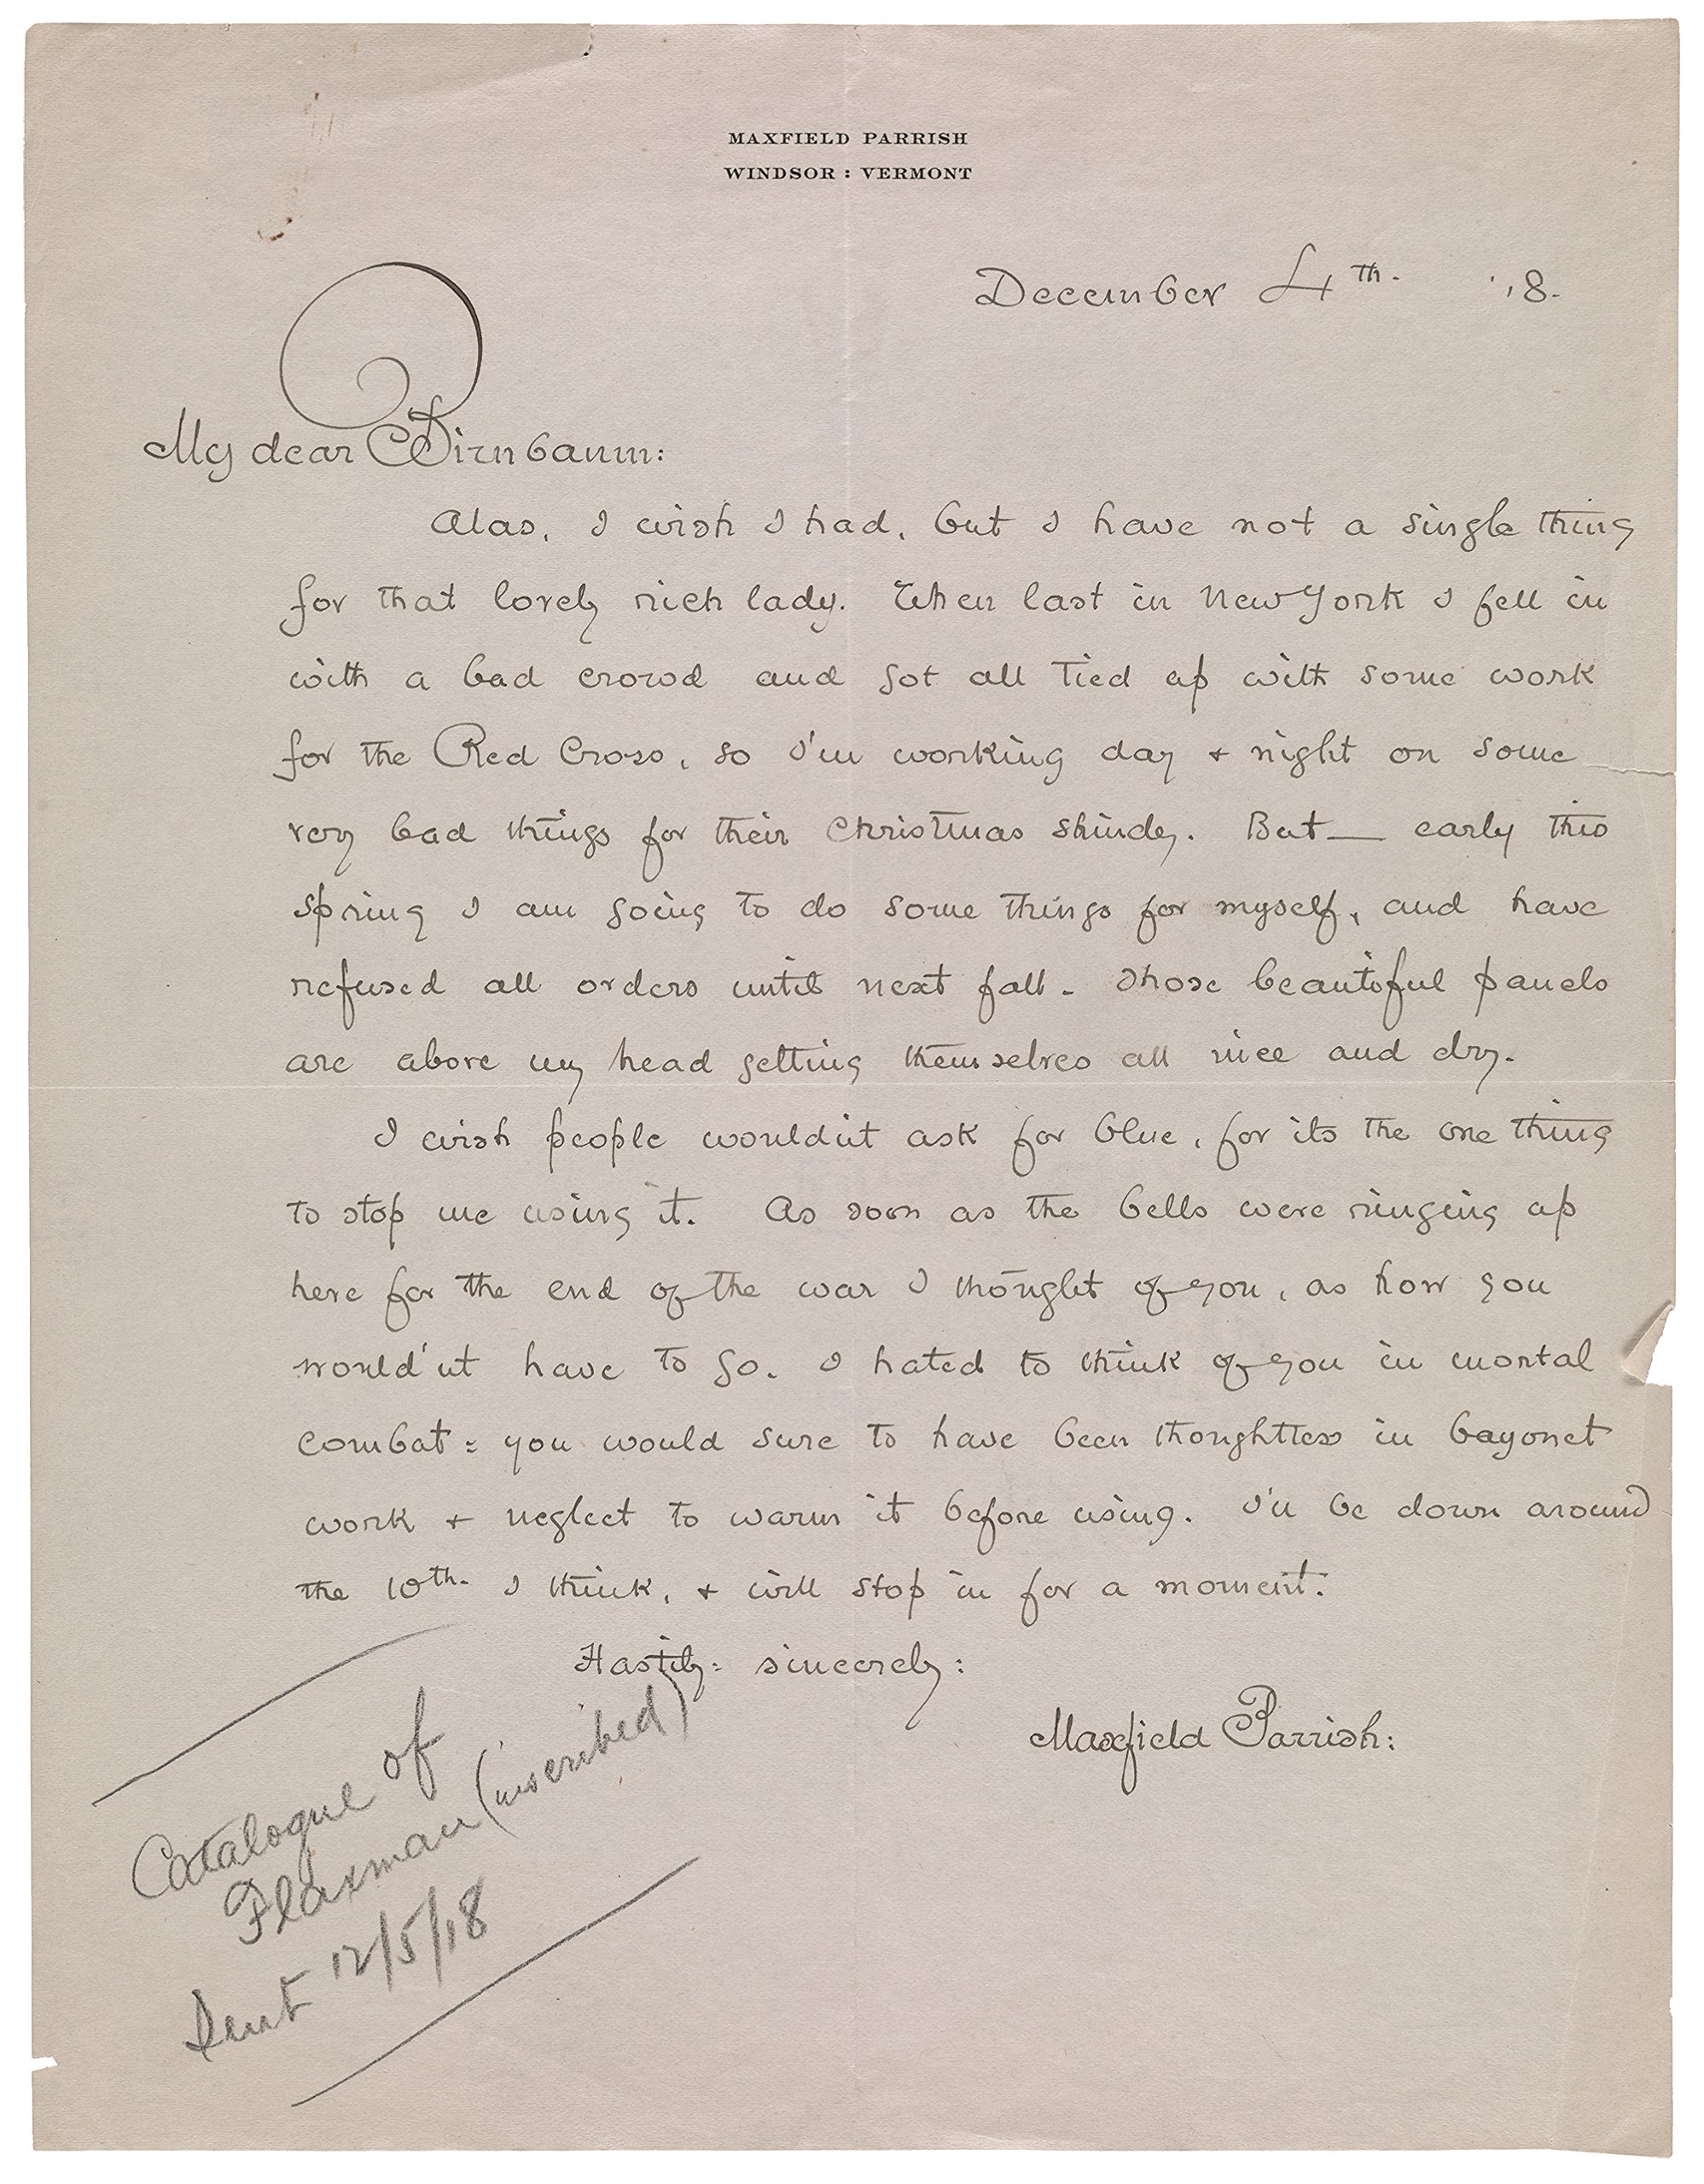 MAXFIELD PARRISH
WINDSOR : VERMONT
December 4th. '18.
My dear Birnbaum:
Alas, I wish I had, but I have not a single thing
for that lovely rich lady. When last in New York I fell in
with a bad crowd and got all tied up with some work
for the Red Cross, so I'm working day + night on some
very bad things for their Christmas shindy. But — early this
spring I am going to do some things for myself, and have
refused all orders until next fall. Those beautiful panels
are above my head getting themselves all nice and dry.
I wish people wouldn't ask for blue, for its the one thing
to stop me using it. As soon as the bells were ringing up
here for the end of the war I thought of you, as how you
would'nt have to go. I hated to think of you in mortal
combat: you would sure to have been thoughtless in bayonet
work + neglect to warm it before using. I'll be down around
the 10th. I think, + will stop in for a moment.
Hastily: sincerely:
Maxfield Parrish:
Catalogue of
Flaxman (inscribed)
Sent 12/5/18